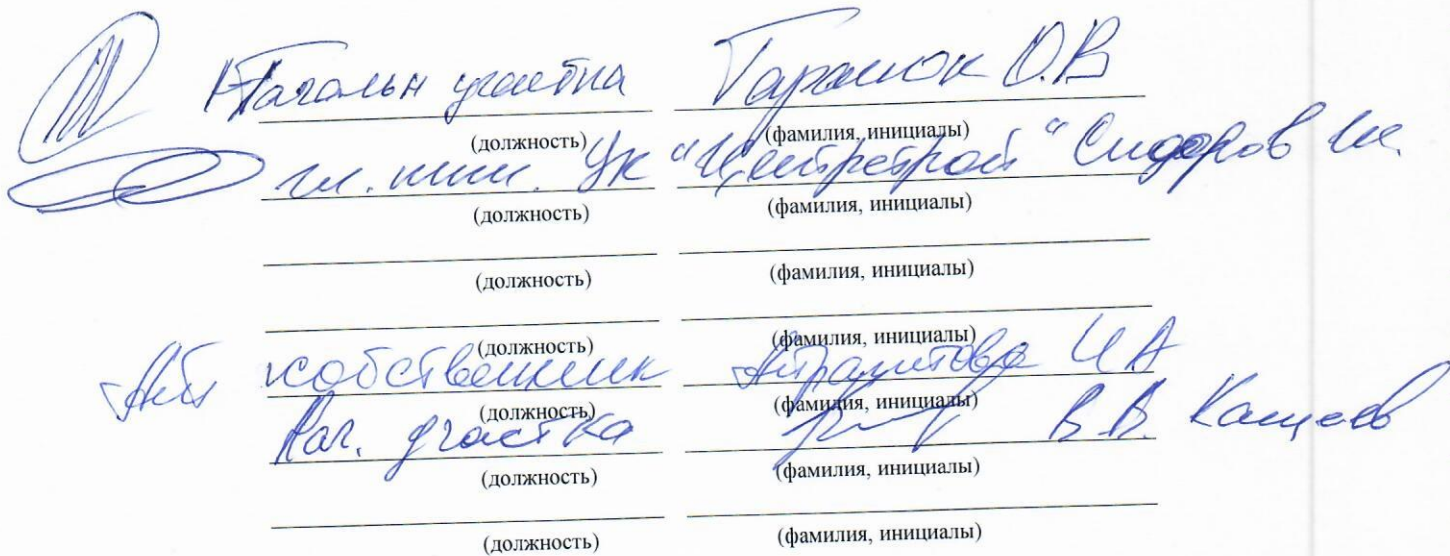 Начальн участка Гаранюк О.В
(должность) (фамилия, инициалы)
гл. инж. УК "Центрстрой" Сидоров
(должность) (фамилия, инициалы)
(должность) (фамилия, инициалы)
(должность) (фамилия, инициалы)
собственник И А
(должность) (фамилия, инициалы)
Нач. участка В.В. Кащеев
(должность) (фамилия, инициалы)
(должность) (фамилия, инициалы)